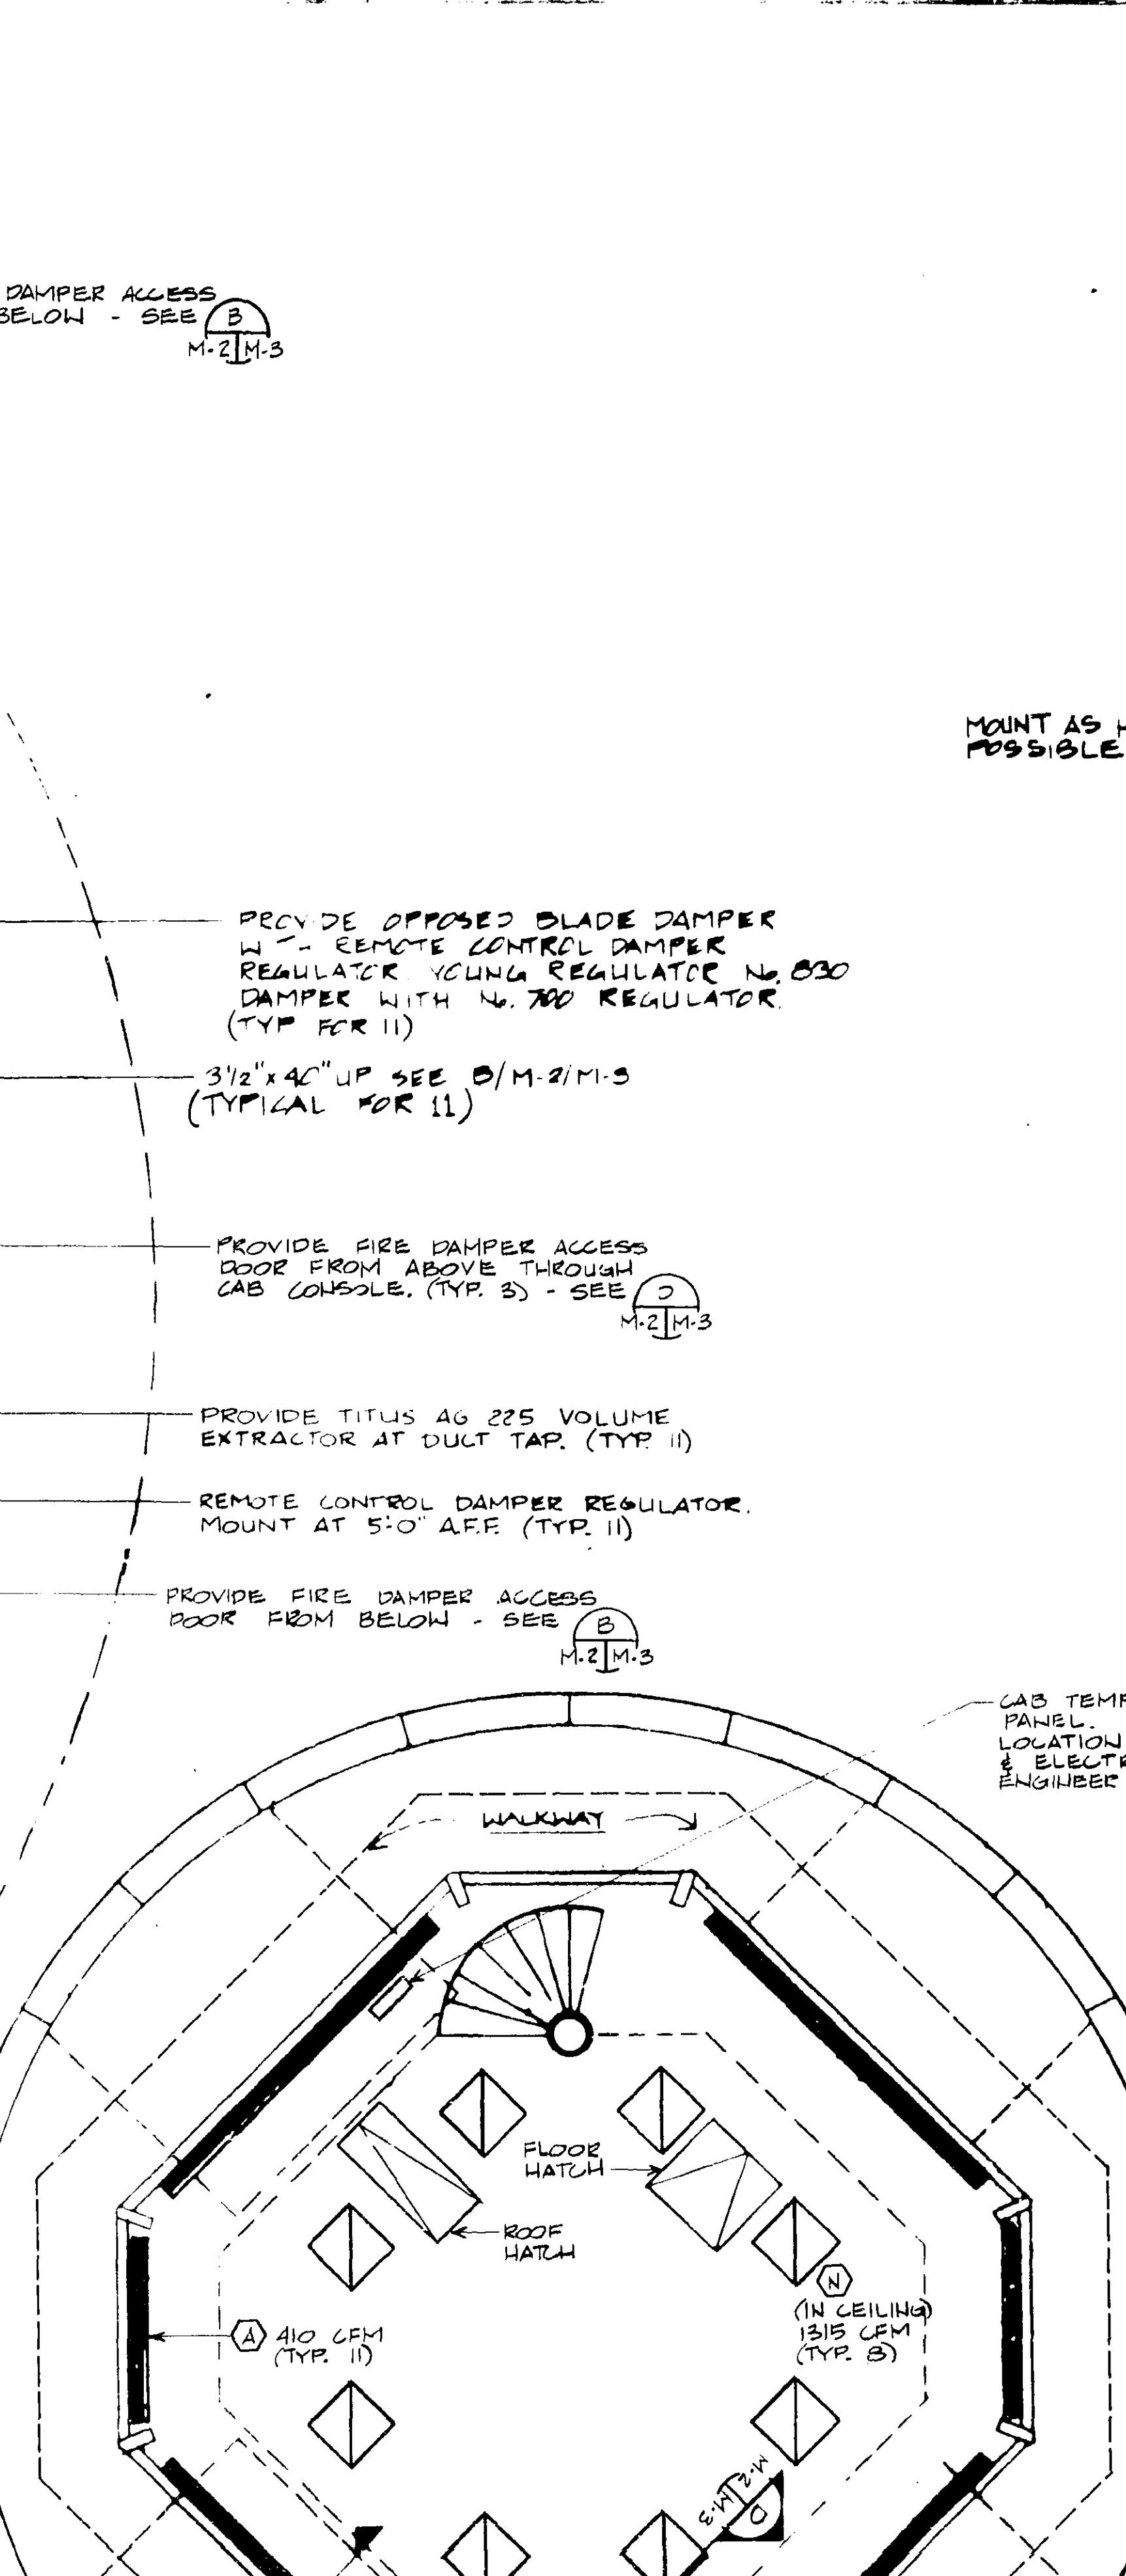 DAMPER ACCESS
BELOW - SEE
B
M-2 M-3
MOUNT AS
POSSIBLE
PROVIDE OPPOSED BLADE DAMPER
REMOTE CONTROL DAMPER
REGULATOR YOUNG REGULATOR No. 830
DAMPER WITH No. 700 REGULATOR.
(TYP FOR 11)
3 1/2" x 40" UP SEE B/M-2/M-3
(TYPICAL FOR 11)
PROVIDE FIRE DAMPER ACCESS
DOOR FROM ABOVE THROUGH
CAB CONSOLE. (TYP. 3) - SEE
D
M-2 M-3
PROVIDE TITUS AG 225 VOLUME
EXTRACTOR AT DUCT TAP. (TYP. 11)
REMOTE CONTROL DAMPER REGULATOR.
MOUNT AT 5'-0" A.F.F. (TYP. 11)
PROVIDE FIRE DAMPER ACCESS
DOOR FROM BELOW - SEE
B
M-2 M-3
CAB TEMP
PANEL.
LOCATION
& ELECTR
ENGINEER
WALKWAY
FLOOR
HATCH
ROOF
HATCH
N
(IN CEILING)
1315 CFM
(TYP. 8)
A 410 CFM
(TYP. 11)
M-2 M-3
D